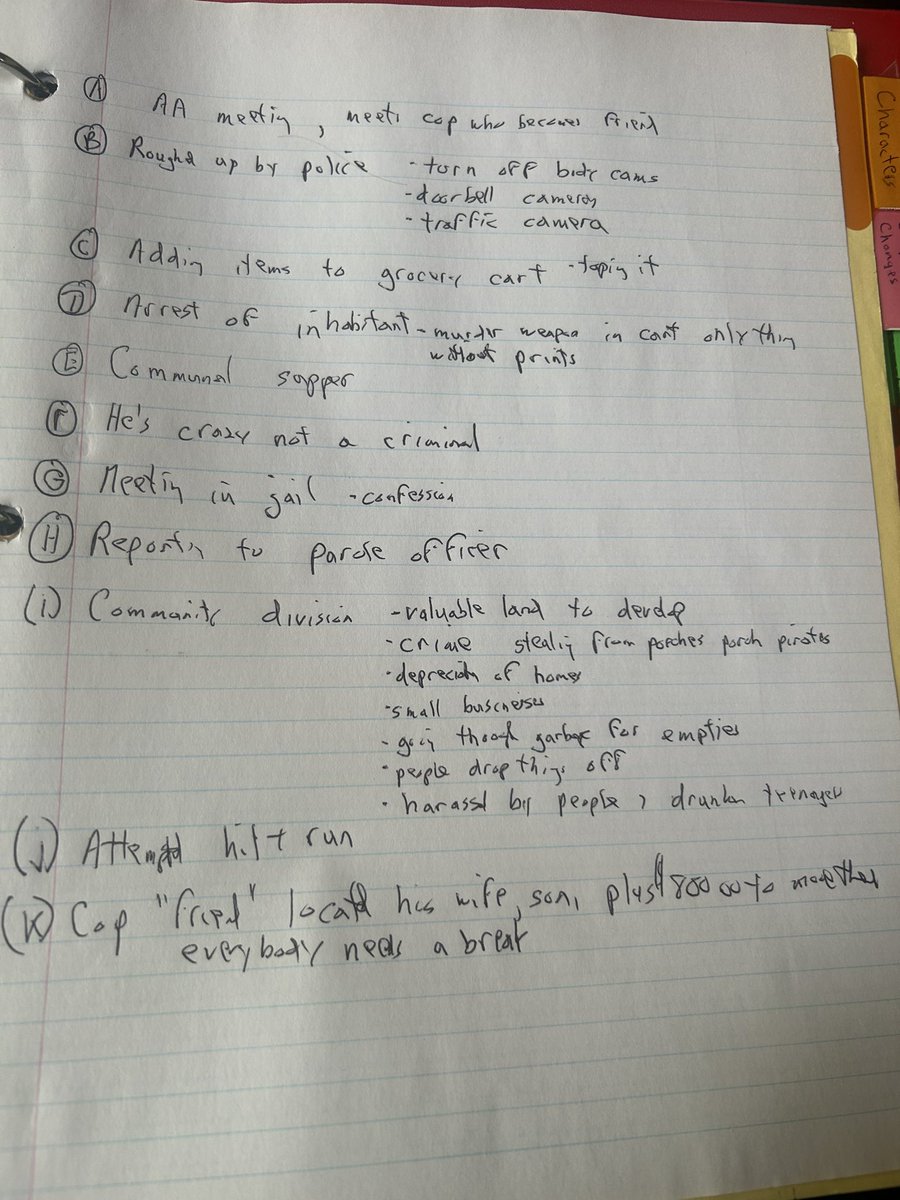 Characters
Changes
(A) AA meetin, meets cop who becomes friend
(B) Roughd up by police - turn off body cams
- doorbell cameras
- traffic camera
(C) Addin items to grocery cart - tapin it
(D) Arrest of inhabitant - murder weapon in cart only thin
without prints
(E) Communal supper
(F) He's crazy not a criminal
(G) Meetin in jail - confession
(H) Reportin to parole officer
(i) Community division - valuable land to develop
- crime stealin from porches porch pirates
- depreciatn of homes
- small buscnesses
- goin though garbage for empties
- people drop things off
- harassd by people, drunken teenager
(J) Attemptd hit + run
(K) Cop "friend" locatd his wife, son, plus to move them
everybody needs a break